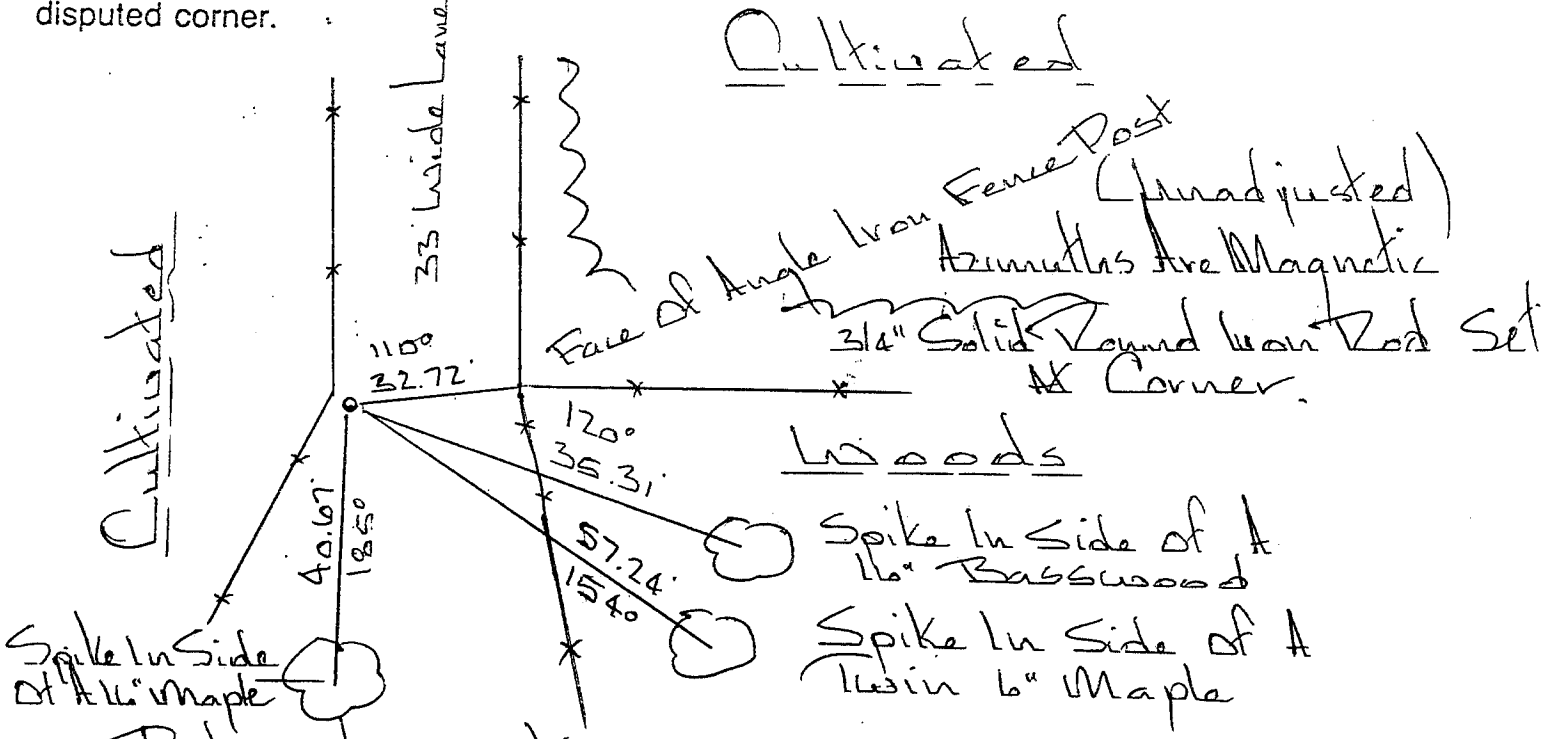 disputed corner.
Cultivated
33' Wide Lane
Face Of Angle Iron Fence Post
(Unadjusted)
Azimuths Are Magnetic
3/4" Solid Round Iron Rod Set
At Corner.
Cultivated
110°
32.72'
120°
35.31'
Woods
40.67'
185°
57.24'
154°
Spike In Side Of A
16" Basswood
Spike In Side Of A
Twin 6" Maple
Spike In Side
Of A 16" Maple